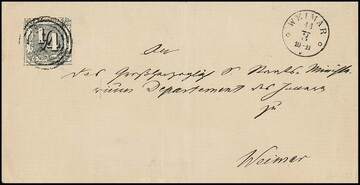 1/4
WEIMAR
An
das Großherzogliche S. Staats-Ministe-
rium Departement des Innern
zu
Weimar